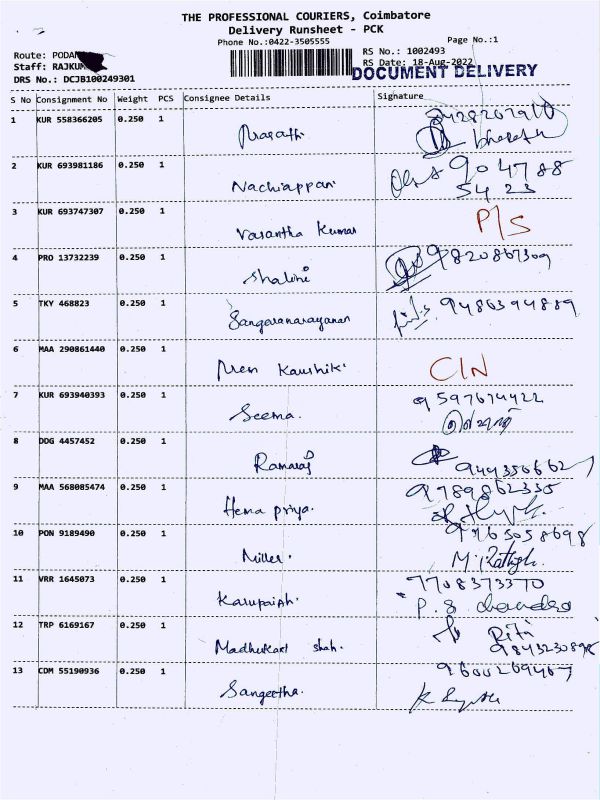 THE PROFESSIONAL COURIERS, Coimbatore
Delivery Runsheet - PCK
Phone No.:0422-3505555
Page No.:1
Route: PODAN
RS No.: 1002493
Staff: RAJKUM
RS Date: 18-Aug-2022
DRS No.: DCJB100249301
DOCUMENT DELIVERY
S No Consignment No Weight PCS Consignee Details Signature
1 KUR 558366205 0.250 1 Prasath bharath
2 KUR 693981186 0.250 1 Nachiappan 904788
5423
3 KUR 693747307 0.250 1 Vasantha Kumar P/S
4 PRO 13732239 0.250 1 Shalini 9820867309
5 TKY 468823 0.250 1 Sangaranarayanan 9486394889
6 MAA 290861440 0.250 1 Kaushik C/N
7 KUR 693940393 0.250 1 Seema. 9597674422
8 DDG 4457452 0.250 1 Ramaraj 9443506627
9 MAA 568085474 0.250 1 Hema priya. 9789862335
10 PON 9189490 0.250 1 Miller. 9965058698
11 VRR 1645073 0.250 1 7708373370
P. S chandra
12 TRP 6169167 0.250 1 Madhukart shah. Rita
9843230898
13 CDM 55190936 0.250 1 Sangeetha. 9600269467